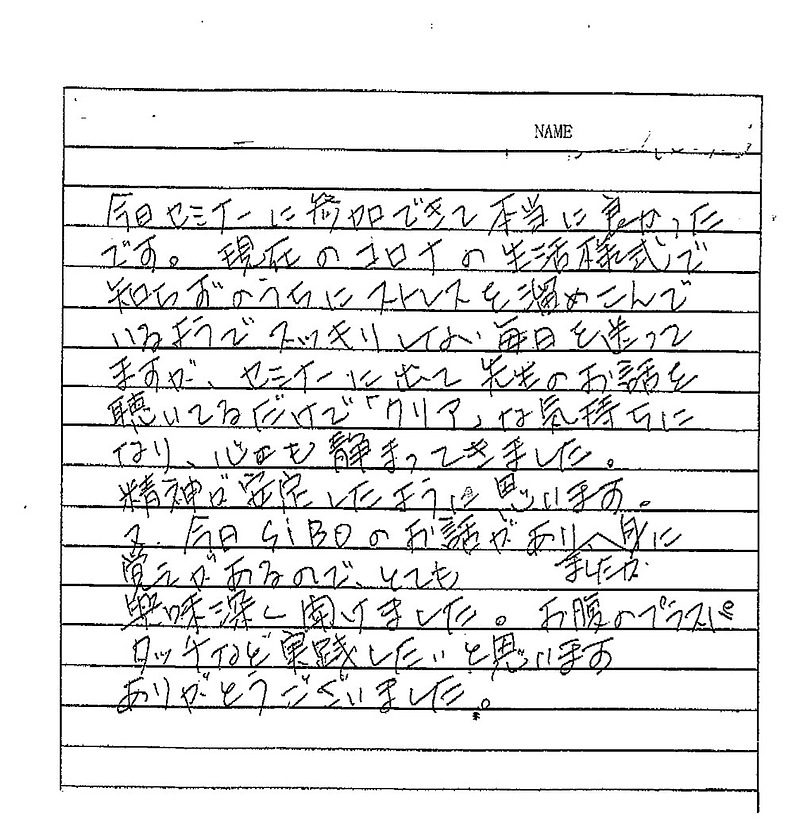 NAME
今日セミナーに参加できて本当に良かった
です。現在のコロナの生活様式で
知らずのうちにストレスを溜めこんで
いるようでスッキリしない毎日を送って
ますが、セミナーに出て先生のお話を
聴いてるだけで「クリア」な気持ちに
なり、心も静まってきました。
精神が安定したように思います。
又、今日SiBOのお話があり
ましたが
身に
覚えがあるので、とても
興味深く聞けました。お腹のプラスパ
タッチなど実践したいと思います
ありがとうございました。